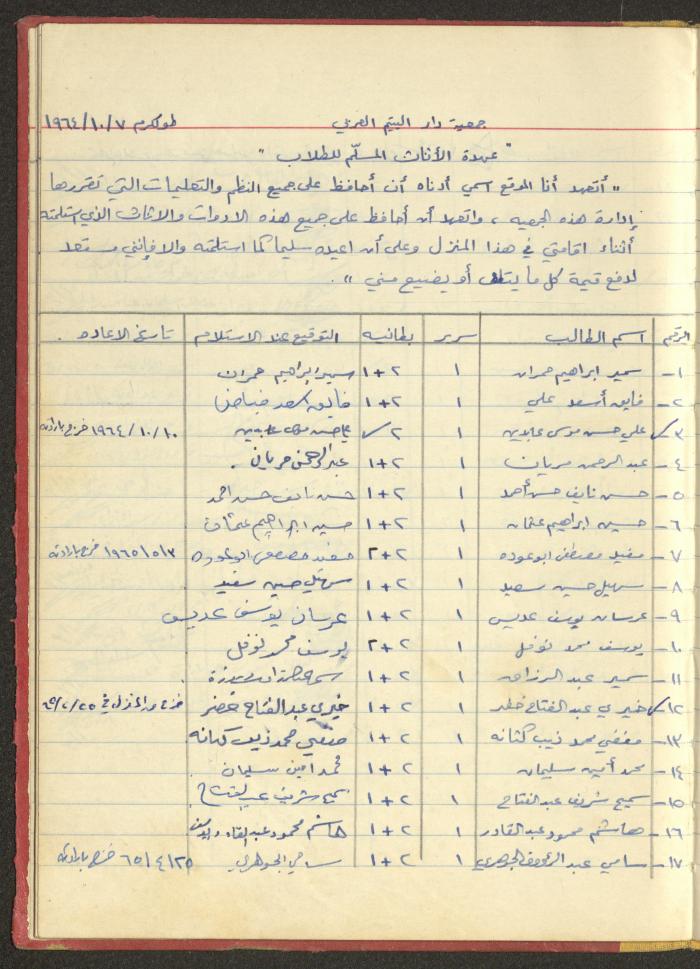 جمعية دار اليتيم العربي طولكرم ١٩٦٤/١٠/٧
" عهدة الأثاث المسلّم للطلاب "
" أتعهد أنا الموقع اسمي أدناه أن أحافظ على جميع النظم والتعليمات التي تقررها
إدارة هذه الجمعيه ، واتعهد أن أحافظ على جميع هذه الادوات والاثاث الذي استلمته
أثناء اقامتي في هذا المنزل وعلى أن اعيده سليما كما استلمته والا فإنني مستعد
لدفع قيمة كل ما يتلف أو يضيع مني " .
الرقم اسم الطالب سرير بطانيه التوقيع عند الاستلام تاريخ الاعاده .
١- سمير ابراهيم حمران ١ ٢+١ سمير ابراهيم حمران
٢- فايق أسعد علي ١ ٢+١ فايق اسعد
٣- علي حسن موسى عابدين ١ ٢ علي حسن موسى عابدين ١٩٦٤/١٠/١٠ خرج بارادته
٤- عبد الرحمن مريان ١ ٢+١ عبد الرحمن مريان .
٥- حسن نايف حسن أحمد ١ ٢+١ حسن نايف حسن احمد
٦- حسين ابراهيم عثمان ١ ٢+١ حسين ابراهيم عثمان
٧- مفيد مصطفى ابو عوده ١ ٢+٢ مفيد مصطفى ابو عوده ١٩٦٥/٥/٣ خرج بارادته
٨- سهيل حسين سعيد ١ ٢+١ سهيل حسين سعيد
٩- عرسان يوسف عديس ١ ٢+١ عرسان يوسف عديس
١٠- يوسف محمد نوفل ١ ٢+٢ يوسف محمد نوفل
١١- سمير عبد الرزاق ١ ٢+١
١٢- خيري عبد الفتاح خضر ١ ٢+١ خيري عبد الفتاح خضر خرج من المنزل في ٦٥/٢/٢٥
١٣- محمد ذيب كتانه ١ ٢+١ محمد ذيب كتانه
١٤- محمد أمين سليمان ١ ٢+١ محمد امين سليمان
١٥- سميح شريف عبد الفتاح ١ ٢+١ سميح شريف عبد الفتاح
١٦- هاشم محمود عبد القادر ١ ٢+١ هاشم محمود عبد القادر
١٧- سامي عبد الرؤوف الجوهري ١ ٢+١ سامي الجوهري ٦٥/٤/٢٥ خرج بارادته